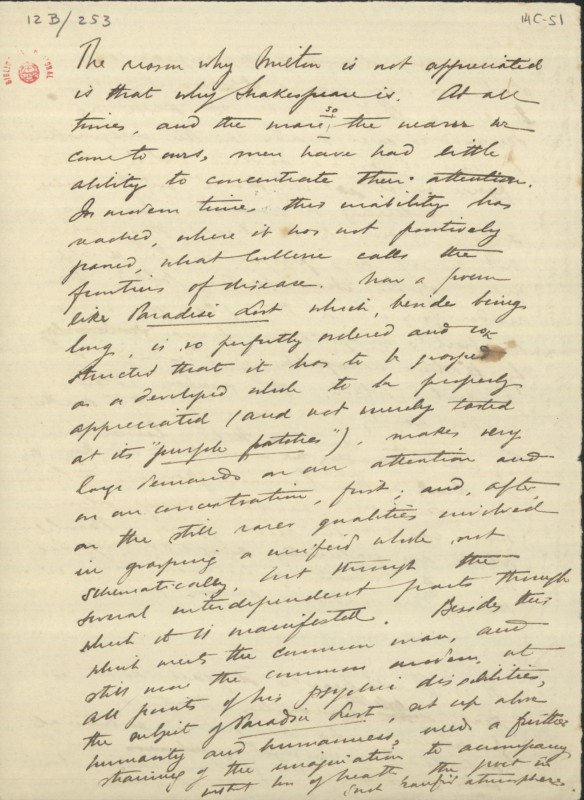 12 B/253
14C-51
The reason why Milton is not appreciated
is that why Shakespeare is. At all
times, and the more so the nearer we
come to ours, men have had little
ability to concentrate their attention.
In modern times this inability has
reached, where it has not positively
passed, what Cullerre calls the
frontiers of disease. Now a poem
like Paradise Lost which, beside being
long, is so perfectly ordered and con-
structed that it has to be grasped
as a developed whole to be properly
appreciated (and not merely tasted
at its "purple patches"), makes very
large demands on our attention and
on our concentration, first; and, after,
on the still rarer qualities involved
in grasping a unified whole, not
schematically, but through the
several interdependent parts through
which it is manifested. Besides this
which meets the common man, and
still more the common modern, at
all points of his psychic disabilities,
the subject of Paradise Lost, set up above
humanity and humanness, needs a further
straining of the imagination to accompany
the poet in
of breath such rarefied atmosphere.